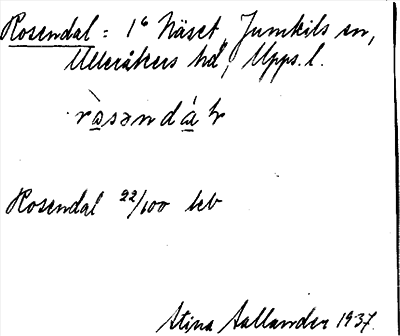 Rosendal = 1⁶ Näset, Jumkils sn,
Ulleråkers hd, Upps. l.
ròsəndáɫ
Rosendal 22/100 kb
Stina Sallander 1937.